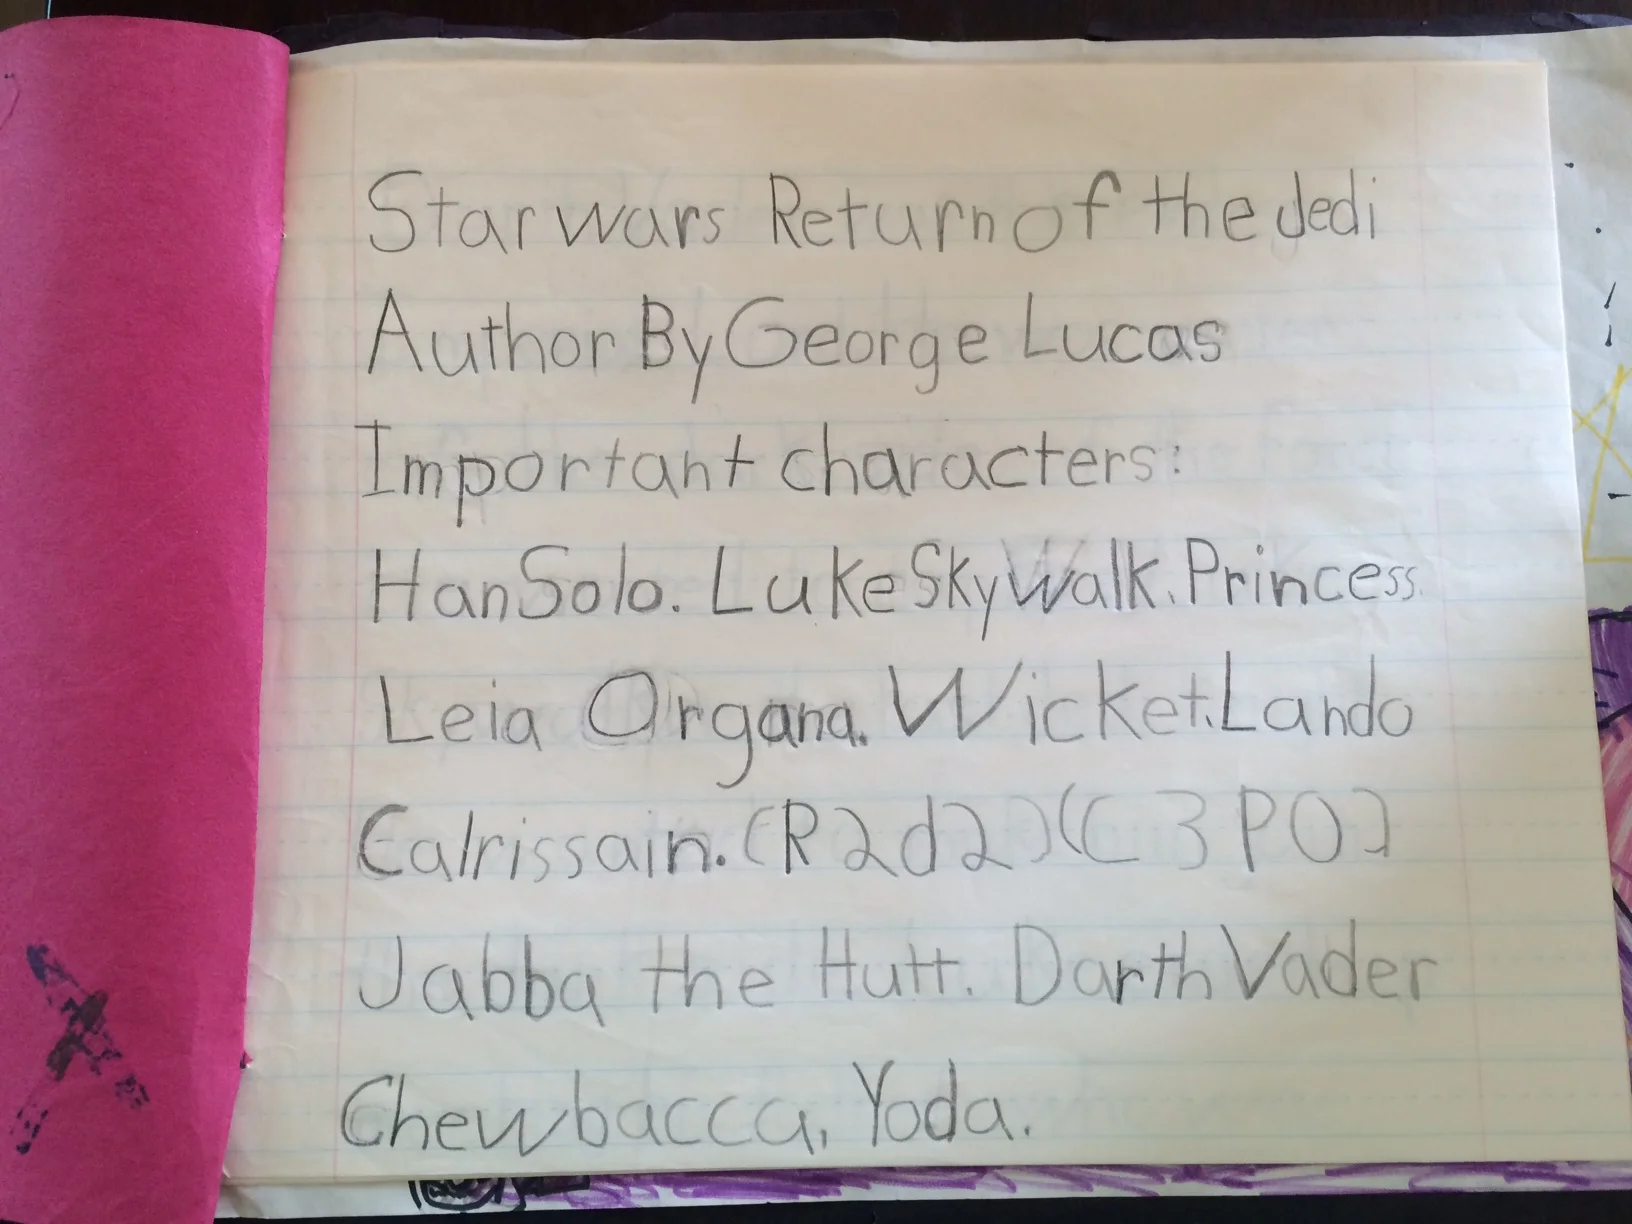 Star wars Return of the Jedi
Author By George Lucas
Important characters:
Han Solo. Luke SkyWalk. Princess.
Leia Organa. Wicket. Lando
Calrissain. (R2d2)(C3PO)
Jabba the Hutt. Darth Vader
Chewbacca, Yoda.